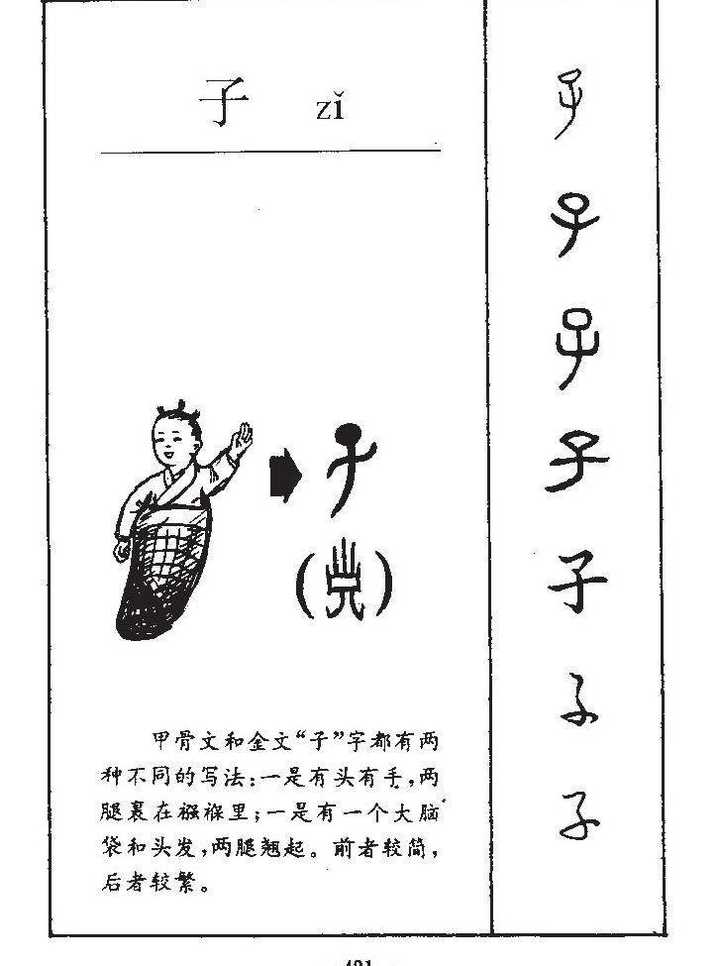 子 zǐ
甲骨文和金文“子”字都有两
种不同的写法：一是有头有手，两
腿裹在襁褓里；一是有一个大脑
袋和头发，两腿翘起。前者较简，
后者较繁。
子
子
子
子
子
子
子